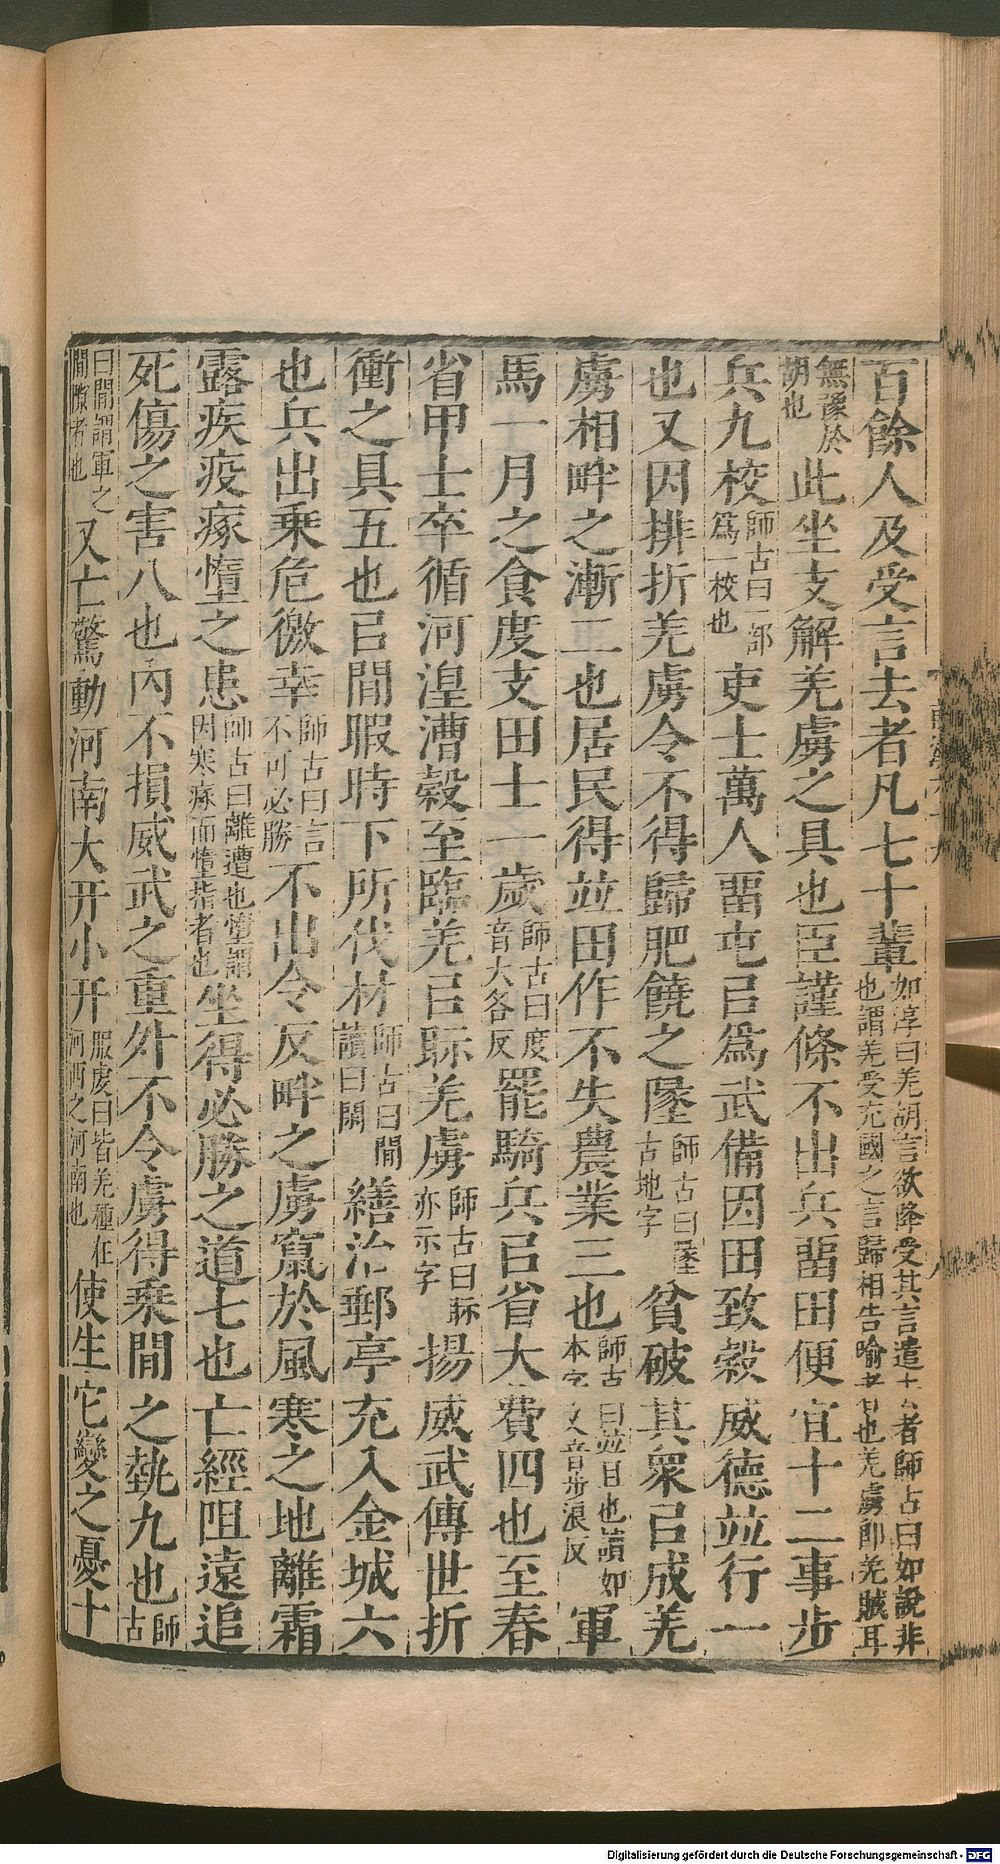 百餘人及受言去者凡七十輩如淳曰羌胡言欲降受其言遣去者師古曰如說非也謂羌受充國之言歸相告喻者也羌虜即羌賊耳
無豫於胡也此坐支解羌虜之具也臣謹條不出兵畱田便宜十二事步
兵九校師古曰一部爲一校也吏士萬人畱屯㠯爲武備因田致穀威德並行一
也又因排折羌虜令不得歸肥饒之墬師古曰墬古地字貧破其衆㠯成羌
虜相畔之漸二也居民得並田作不失農業三也師古曰並且也讀如本字又音步浪反軍
馬一月之食度支田士一歲師古曰度音大各反罷騎兵㠯省大費四也至春
省甲士卒循河湟漕穀至臨羌㠯眎羌虜師古曰眎亦示字揚威武傳世折
衝之具五也㠯閒暇時下所伐材師古曰閒讀曰閑繕治郵亭充入金城六
也兵出乘危徼幸師古曰言不可必勝不出令反畔之虜竄於風寒之地離霜
露疾疫瘃墯之患師古曰離遭也墯謂因寒瘃而墯指者也坐得必勝之道七也亡經阻遠追
死傷之害八也內不損威武之重外不令虜得乘閒之埶九也師古
曰閒謂軍之閒隙者也又亡驚動河南大幵小幵服虔曰皆羌種在河西之河南也使生它變之憂十
Digitalisierung gefördert durch die Deutsche Forschungsgemeinschaft - DFG